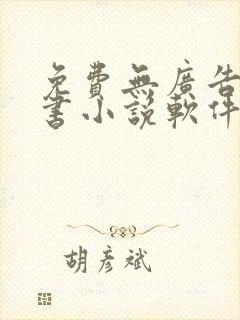 免費無廣告
書小說軟件
胡彥斌